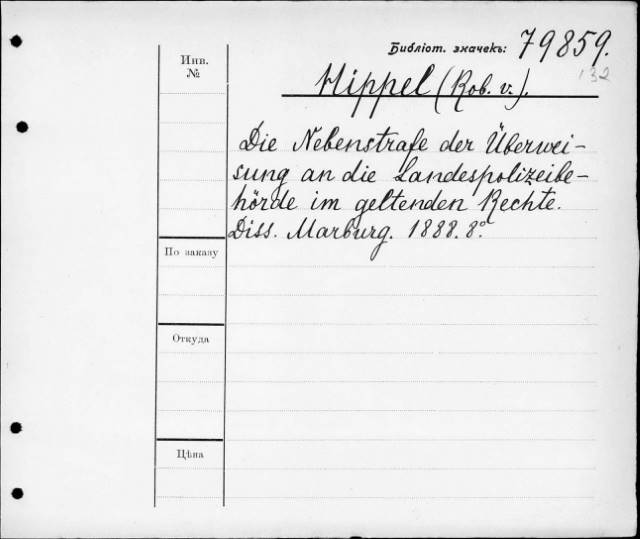 Библіот. значекъ: 79859.
132
Инв.
№
Hippel (Rob. v.).
Die Nebenstrafe der Überwei-
sung an die Landespolizeibe-
hörde im geltenden Rechte.
Diss. Marburg. 1888. 8°.
По заказу
Откуда
Цѣна